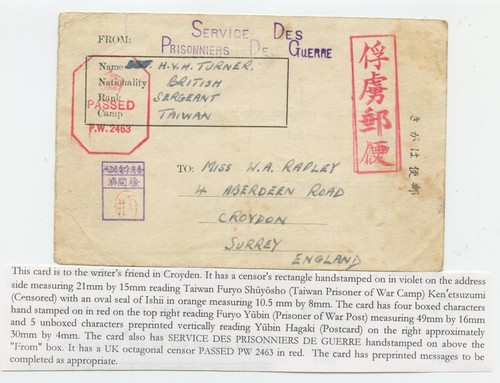 SERVICE DES
PRISONNIERS DE GUERRE
FROM:
Name SGT. H.V.H. TURNER.
Nationality BRITISH
Rank SERGEANT
Camp TAIWAN
PASSED
P.W. 2463
俘虜郵便
きがは便郵
檢閲濟
TO: MISS W.A. RAPLEY
4 ABERDEEN ROAD
CROYDON
SURREY
ENGLAND
This card is to the writer's friend in Croyden. It has a censor's rectangle handstamped on in violet on the address
side measuring 21mm by 15mm reading Taiwan Furyo Shūyōsho (Taiwan Prisoner of War Camp) Ken'etsuzumi
(Censored) with an oval seal of Ishii in orange measuring 10.5 mm by 8mm. The card has four boxed characters
hand stamped on in red on the top right reading Furyo Yūbin (Prisoner of War Post) measuring 49mm by 16mm
and 5 unboxed characters preprinted vertically reading Yūbin Hagaki (Postcard) on the right approximately
30mm by 4mm. The card also has SERVICE DES PRISONNIERS DE GUERRE handstamped on above the
"From" box. It has a UK octagonal censor PASSED PW 2463 in red. The card has preprinted messages to be
completed as appropriate.